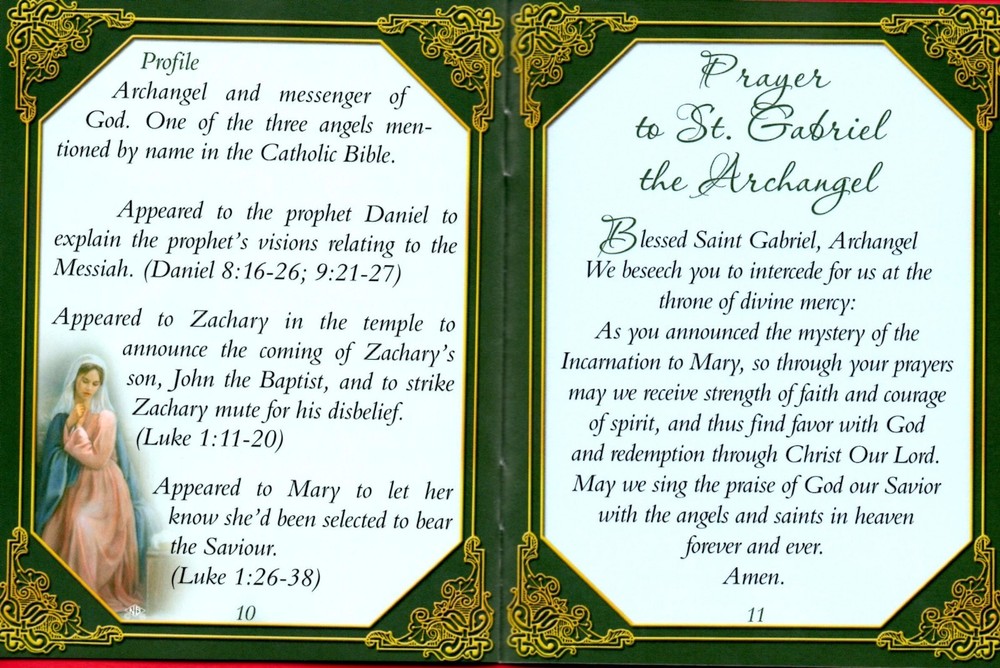 Profile
Archangel and messenger of
God. One of the three angels men-
tioned by name in the Catholic Bible.
Appeared to the prophet Daniel to
explain the prophet's visions relating to the
Messiah. (Daniel 8:16-26; 9:21-27)
Appeared to Zachary in the temple to
announce the coming of Zachary's
son, John the Baptist, and to strike
Zachary mute for his disbelief.
(Luke 1:11-20)
Appeared to Mary to let her
know she'd been selected to bear
the Saviour.
(Luke 1:26-38)
10
Prayer
to St. Gabriel
the Archangel
Blessed Saint Gabriel, Archangel
We beseech you to intercede for us at the
throne of divine mercy:
As you announced the mystery of the
Incarnation to Mary, so through your prayers
may we receive strength of faith and courage
of spirit, and thus find favor with God
and redemption through Christ Our Lord.
May we sing the praise of God our Savior
with the angels and saints in heaven
forever and ever.
Amen.
11